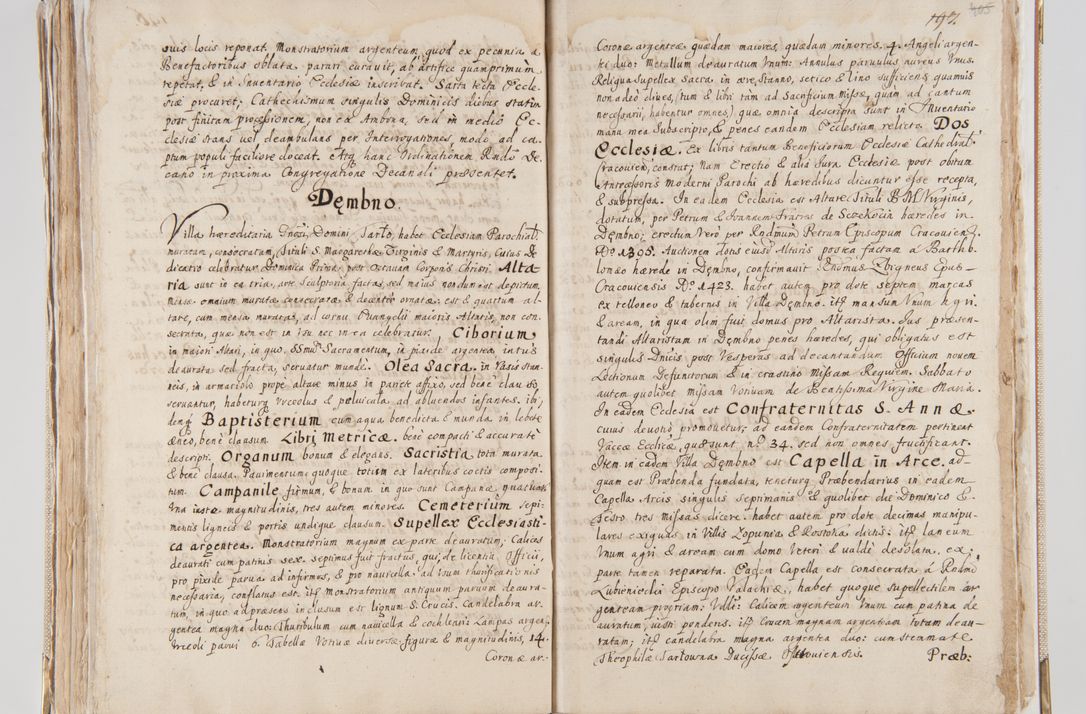 suis locis reponat. Monstratorium argenteum quod ex pecunia a
Benefactoribus oblata parari curavit, ab artifice quamprimum
repetat, & in Inventario Ecclesiæ inscribat. Sarta tecta Eccle-
siæ procuret; Cathechismum singulis Dominicis diebus statim
post finitam processionem, non ex Ambona, sed in medio Ec-
clesiæ stans vel deambulans per Interrogationes, modo ad ca-
ptum populi faciliore doceat. Atq hanc Ordinationem Rndo De-
cano in proxima Congregatione Decanali præsentet.
Dęmbno.
Villa hæreditaria Domini Tarło, habet Ecclesiam Parochial:
muratam, consecratam, Tituli S. Margarethæ Virginis & Martyris, Cuius De
dicatio celebratur Dominica Prima post Octavam Corporis Christi. Alta
ria sunt in ea tria, arte Sculptoria facta, sed maius nondum est depictum,
mensæ omnium muratæ consecratæ & decenter ornatæ: est & quartum al-
tare, cum mensa murata, ad cornu Evangelij maioris Altaris, non con-
secrata, quæ non est in usu nec in ea celebratur. Ciborium
in maiori Altari, in quo SSmum Sacramentum, in pixide argentea intus
deaurata sed fracta, servatur munde. Olea Sacra in vasis stan-
neis, in armariolo prope altare minus in pariete affixo, sed bene clauso,
servantur, habetur Urceolus & pelvicula ad abluendos infantes. ibi,
demq Baptisterium cum aqua benedicta & munda in lebete
æneo, bene clausum. Libri Metricæ. bene compacti & accurate
descripti. Organum bonum & elegans. Sacristia tota murata.
& bene clausa. Pavimentum quoque totum ex lateribus coctis composi.
tum. Campanile firmum, & bonum. in quo sunt Campanæ quatuor
Una iustæ magnitudinis, tres autem minores. Cemeterium sepi-
mentis ligneis & portis undique clausum. Supellex Ecclesiasti-
ca argentea. Monstratorium magnum ex parte deauratum: Calices
deaurati cum patinis sex. septimus fuit fractus, qui, de licentia Officii,
pro pixide parva ad infirmos, & pro navicella ad usum thurificationis
necessaria, conflatus est. itq Monstratorium antiquum parvum deaura-
tum, in quo ad præsens inclusum est lignum S. Crucis. Candelabra ar.
gentea magna duo: Thuribulum cum navicella & cochleari: Lampas argen,
Urceoli parvi 6. Tabellæ Votivæ diversæ figuræ & magnitudinis, 14.
Coronæ ar.
197.
405
Coronæ argenteæ quædam maiores, quædam minores. 4. Angeli argen-
tei duo: Metallum deauratum Unum: Annulus parvulus aureus Unus.
Reliqua Supellex Sacra. in ære, Stanno, serico & lino sufficiens, quamvis
non adeo dives, (tum & libri tam ad Sacrificium Missæ, quam ad cantum
necessarii, habentur omnes) quæ omnia descripta sunt in Inventario
manu mea Subscripto, & penes eandem Ecclesiam relicto. Dos
Ecclesiæ. Ex libris tantum Beneficiorum Ecclesiæ Cathedral
Cracovien, constat; Nam Erectio & alia Iura Ecclesiæ post obitum
Antecessoris moderni Parochi ab hæredibus dicuntur esse recepta,
& suppressa. In eadem Ecclesia est Altare Tituli B. M. Virginis,
dotatum, per Petrum & Ioannem Fratres de hæredes in
Dębno; erectum vero per Rndmum Petrum Episcopum Cracovien
Aº 1395. Auctionem dotis eiusd Altaris postea factam á Barthol.
lomæo hærede in Dębno, confirmavit Rndmus Zbigneus Epus
Cracoviensis Aº 1423. habet autem pro dote septem marcas
ex telloneo & tabernis in Villa Dębno. itq mansum Unum agri.
& aream, in qua olim fuit domus pro Altarista. Ius præsen-
tandi Altaristam in Dębno penes hæredes, qui obligatus est
singulis Dnicis post Vesperas ad decantandum Officium novem
Lectionum Defunctorum & in crastino Missam Requiem. Sabbato
autem quolibet Missam Votivam de Beatissima Virgine Maria.
In eadem Ecclesia est Confraternitas S. Annæ.
cuius devotio promovetur; ad eandem Confraternitatem pertinent
Vaccæ Ecclicæ, quæ sunt nº 34. sed non omnes fructificant.
Item in eadem Villa Dębno est Capella in Arce. ad-
quam est Præbenda fundata, tenetur Præbendarius in eadem
Capella Arcis singulis septimanis & quolibet die Dominico &
Festo tres missas dicere. habet autem pro dote decimas manipu-
lares exiguas in Villis Łoponia & Rostoka dictis: itq laneum
Unum agri & aream cum domo Veteri & valde desolata, ex
parte tamen reparata. Eadem Capella est consecrata á Rndmo
Lubieniecki Episcopo Valachiæ, habet quoque supellectilem ar
genteam propriam: Vdlt: Calicem argenteum Unum cum patina de
auratum, itq Crucem magnam argenteam totam deau-
ratam; itq candelabra magna argentea duo: cum stemmate
Theophilæ Tarłowna Ducissæ
Præb: